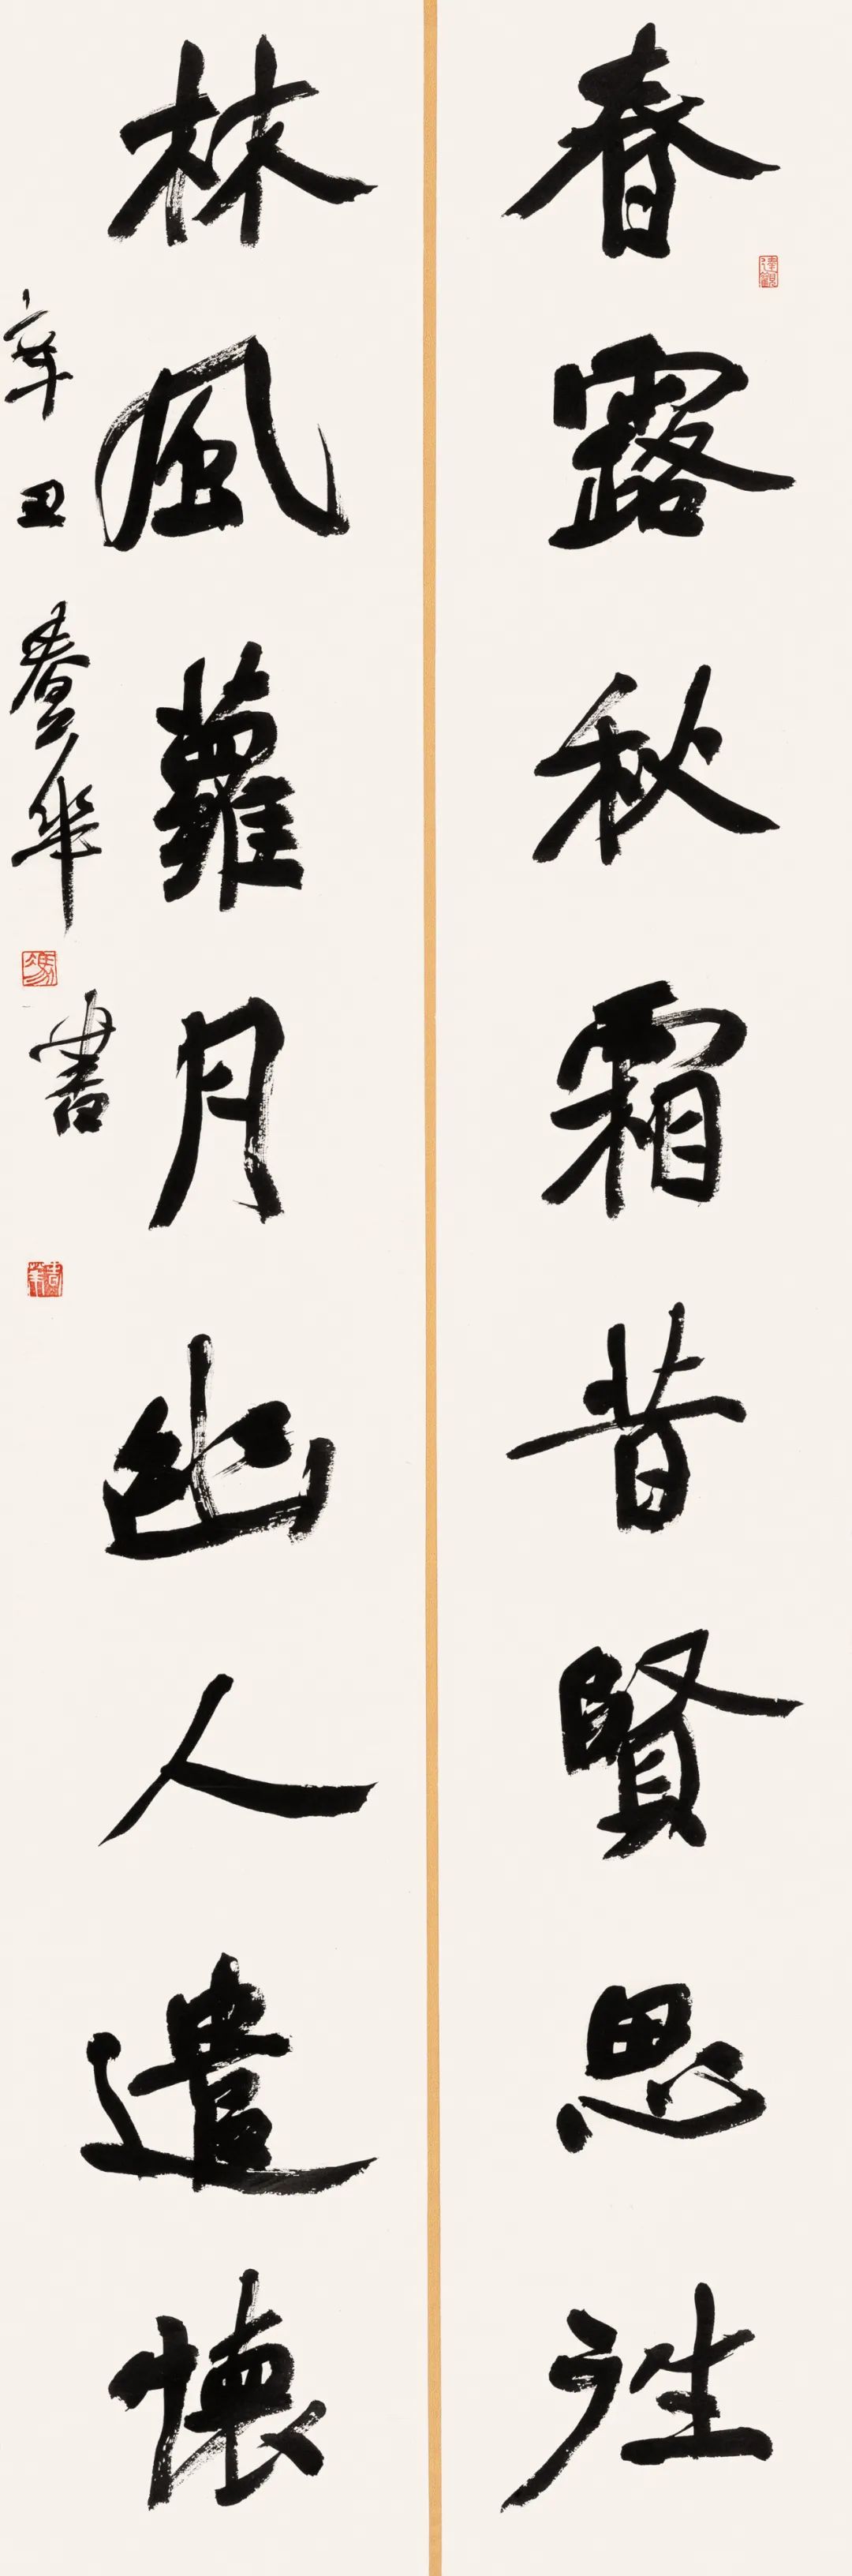 春露秋霜昔賢思往
林風蘿月幽人遣懷
辛丑
書